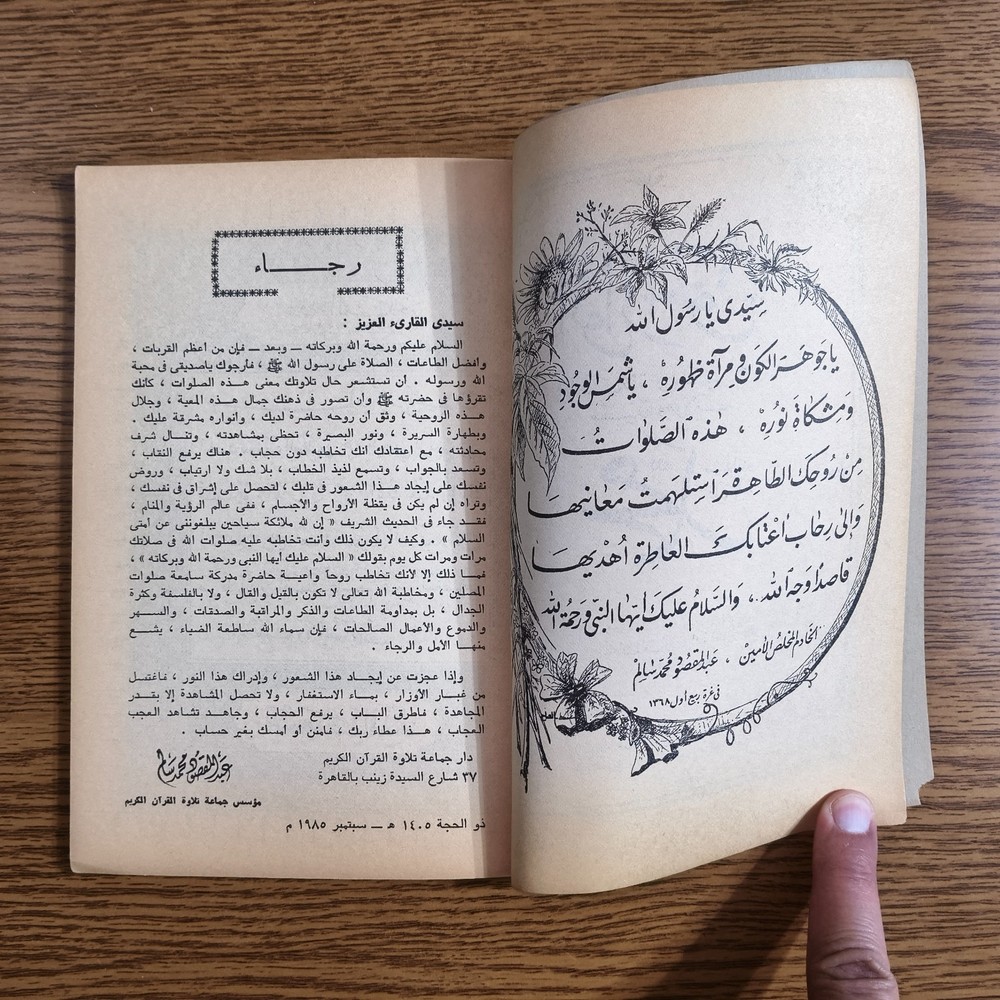 سيدى يا رسول الله
يا جوهر الكون ومرآة ظهوره ، يا شمس الوجود
ومشكاة نوره ، هذه الصلوات
من روحك الطاهرة استلهمت معانيها
وإلى رحاب أعتابك العاطرة أهديها
قاصدًا وجه الله .. والسلام عليك أيها النبى ورحمة الله
الخادم المخلص الأمين ، عبد المقصود محمد سالم
فى غرة ربيع أول ١٣٦٨
رجـــــاء
سيدى القارىء العزيز :
السلام عليكم ورحمة الله وبركاته ــ وبعد ــ فإن من أعظم القربات ،
وأفضل الطاعات ، الصلاة على رسول الله ﷺ ، فأرجوك ياصديقى فى محبة
الله ورسوله . أن تستشعر حال تلاوتك معنى هذه الصلوات ، كأنك
تقرؤها فى حضرته ﷺ وأن تصور فى ذهنك جمال هذه المعية ، وجلال
هذه الروحية ، وثق أن روحه حاضرة لديك ، وأنواره مشرقة عليك .
وبطهارة السريرة ، ونور البصيرة ، تحظى بمشاهدته ، وتنال شرف
محادثته ، مع اعتقادك أنك تخاطبه دون حجاب . هناك يرفع النقاب ،
وتسعد بالجواب ، وتسمع لذيذ الخطاب ، بلا شك ولا ارتياب ، وروض
نفسك على إيجاد هذا الشعور فى قلبك ، لتحصل على إشراق فى نفسك ،
وتراه إن لم يكن فى يقظة الأرواح والأجسام ، ففى عالم الرؤية والمنام ،
فقد جاء فى الحديث الشريف « إن لله ملائكة سياحين يبلغوننى عن أمتى
السلام » . وكيف لا يكون ذلك وأنت تخاطبه عليه صلوات الله فى صلاتك
مرات ومرات كل يوم بقولك « السلام عليك أيها النبى ورحمة الله وبركاته » ،
فما ذلك إلا لأنك تخاطب روحاً واعية حاضرة مدركة سامعة صلوات
المصلين ، ومخاطبة الله تعالى لا تكون بالقيل والقال ، ولا بالفلسفة وكثرة
الجدال ، بل بمداومة الطاعات والذكر والمراقبة والصدقات ، والسهر
والدموع والأعمال الصالحات ، فإن سماء الله ساطعة الضياء ، يشع
منها الأمل والرجاء .
وإذا عجزت عن إيجاد هذا الشعور ، وإدراك هذا النور ، فاغتسل
من غبار الأوزار ، بماء الاستغفار ، ولا تحصل المشاهدة إلا بقدر
المجاهدة ، فاطرق الباب ، يرفع الحجاب ، وجاهد تشاهد العجب
العجاب ، هذا عطاء ربك ، فامنن أو أمسك بغير حساب .
دار جماعة تلاوة القرآن الكريم
٣٧ شارع السيدة زينب بالقاهرة
عبد المقصود محمد سالم
مؤسس جماعة تلاوة القرآن الكريم
ذو الحجة ١٤٠٥ هـ ــ سبتمبر ١٩٨٥ م